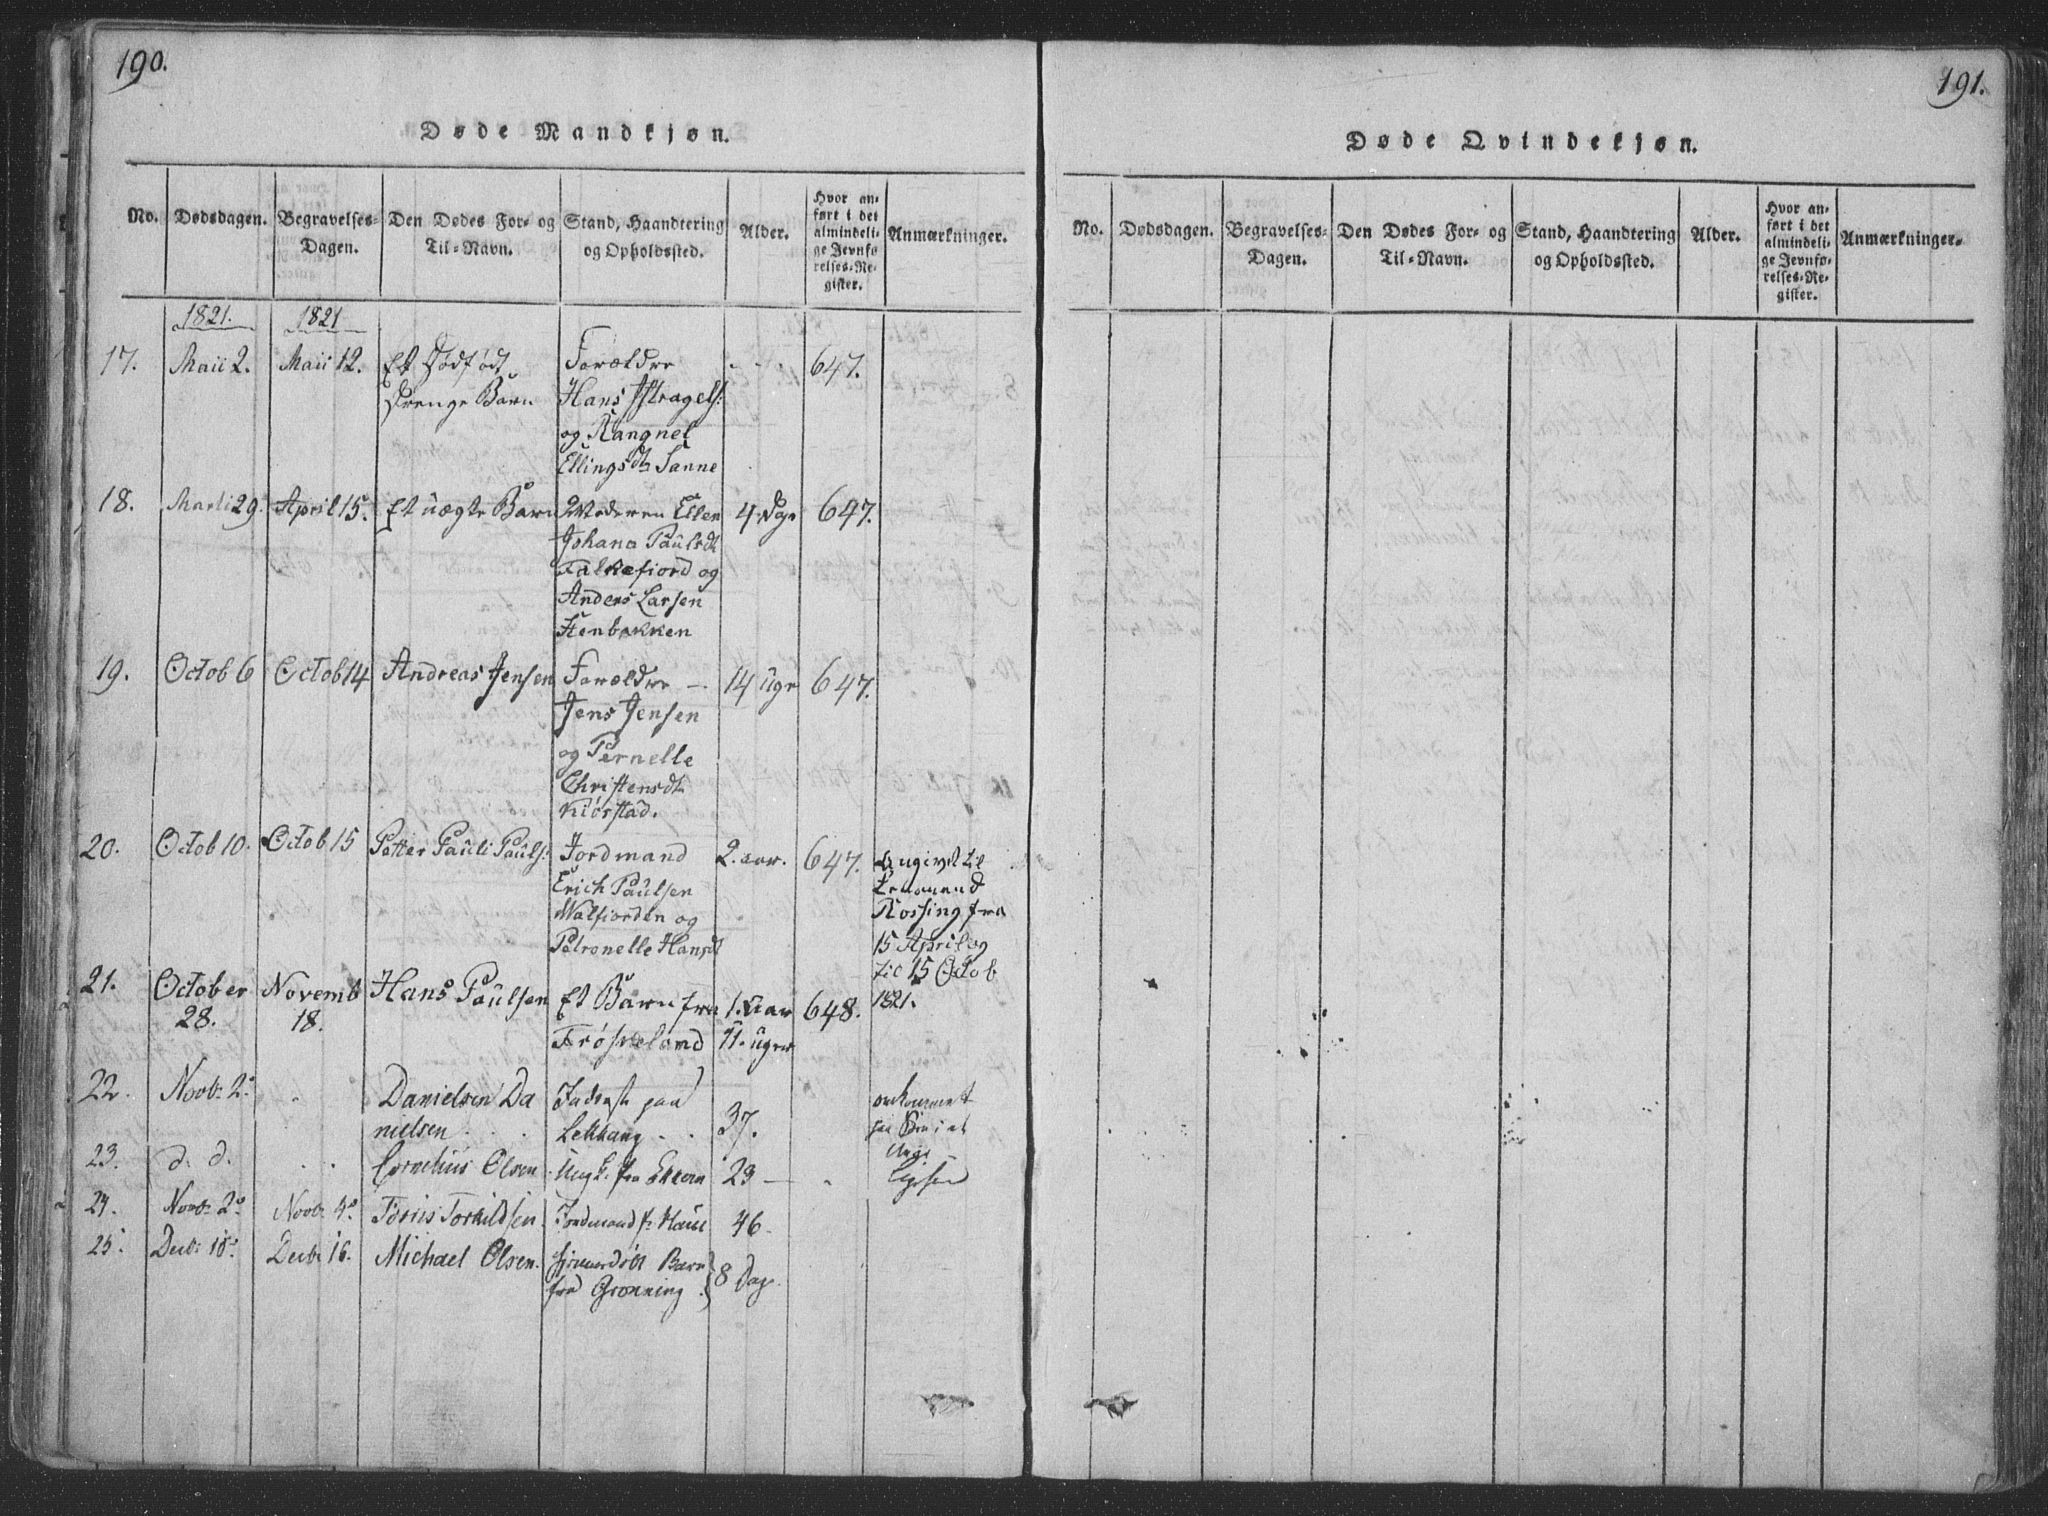 190.
Døde Mandkjøn.
No.
Dødsdagen.
Begravelses-
Dagen.
Den Dødes For- og
Til-Navn.
Stand, Haandtering
og Opholdssted.
Alder.
Hvor an-
ført i det
almindeli-
ge Jevnfø-
relses-Re-
gister.
Anmærkninger.
1821. 1821
17. Maii 2. Maii 12. Et Dødfødt
Drenge Barn
Forældre
Hans
og Rangnel
Ellingsdt Sanne
647.
18. Martii 29. April 15. Et uægte Barn
Moderen Ellen
Johana Paulsdt
Falkefiord og
Anders Larsen
Stenbakken
4 Dage 647.
19. Octob 6 Octob 14 Andreas Jensen
Forældre
Jens Jensen
og Pernelle
Christensdt
Kiørstad.
14 Uger 647.
20. Octob 10. Octob 15 Petter Pauli Pauls:
Jordmand
Erich Paulsen
Walfiorden og
Petronelle Hansdt
2. aar. 647.
Angivet til
Rossing fra
15 April og
til 15 Octob
1821.
21. October
28.
Novemb
18.
Hans Paulsen
Et Barn fra
Frøskeland
1. Aar
11. uger
648.
22. Novb: 2.
Danielsen Da
nielsen
paa
Lekhang
37.
omkommet
paa Søen i et
23. d. d. Cornelius Olsen
Ungk. fra
23
24. Novb: 2. Novb: 4. Tørris Torkildsen
Jordmand
46.
25. Decb: 10. Decb: 16. Michael Olsen.
hjemmedøbt Barn
fra Grønning
8 Dage
191.
Døde Qvindekjøn.
No.
Dødsdagen.
Begravelses-
Dagen.
Den Dødes For- og
Til-Navn.
Stand, Haandtering
og Opholdssted.
Alder.
Hvor an-
ført i det
almindeli-
ge Jevnfø-
relses-Re-
gister.
Anmærkninger.